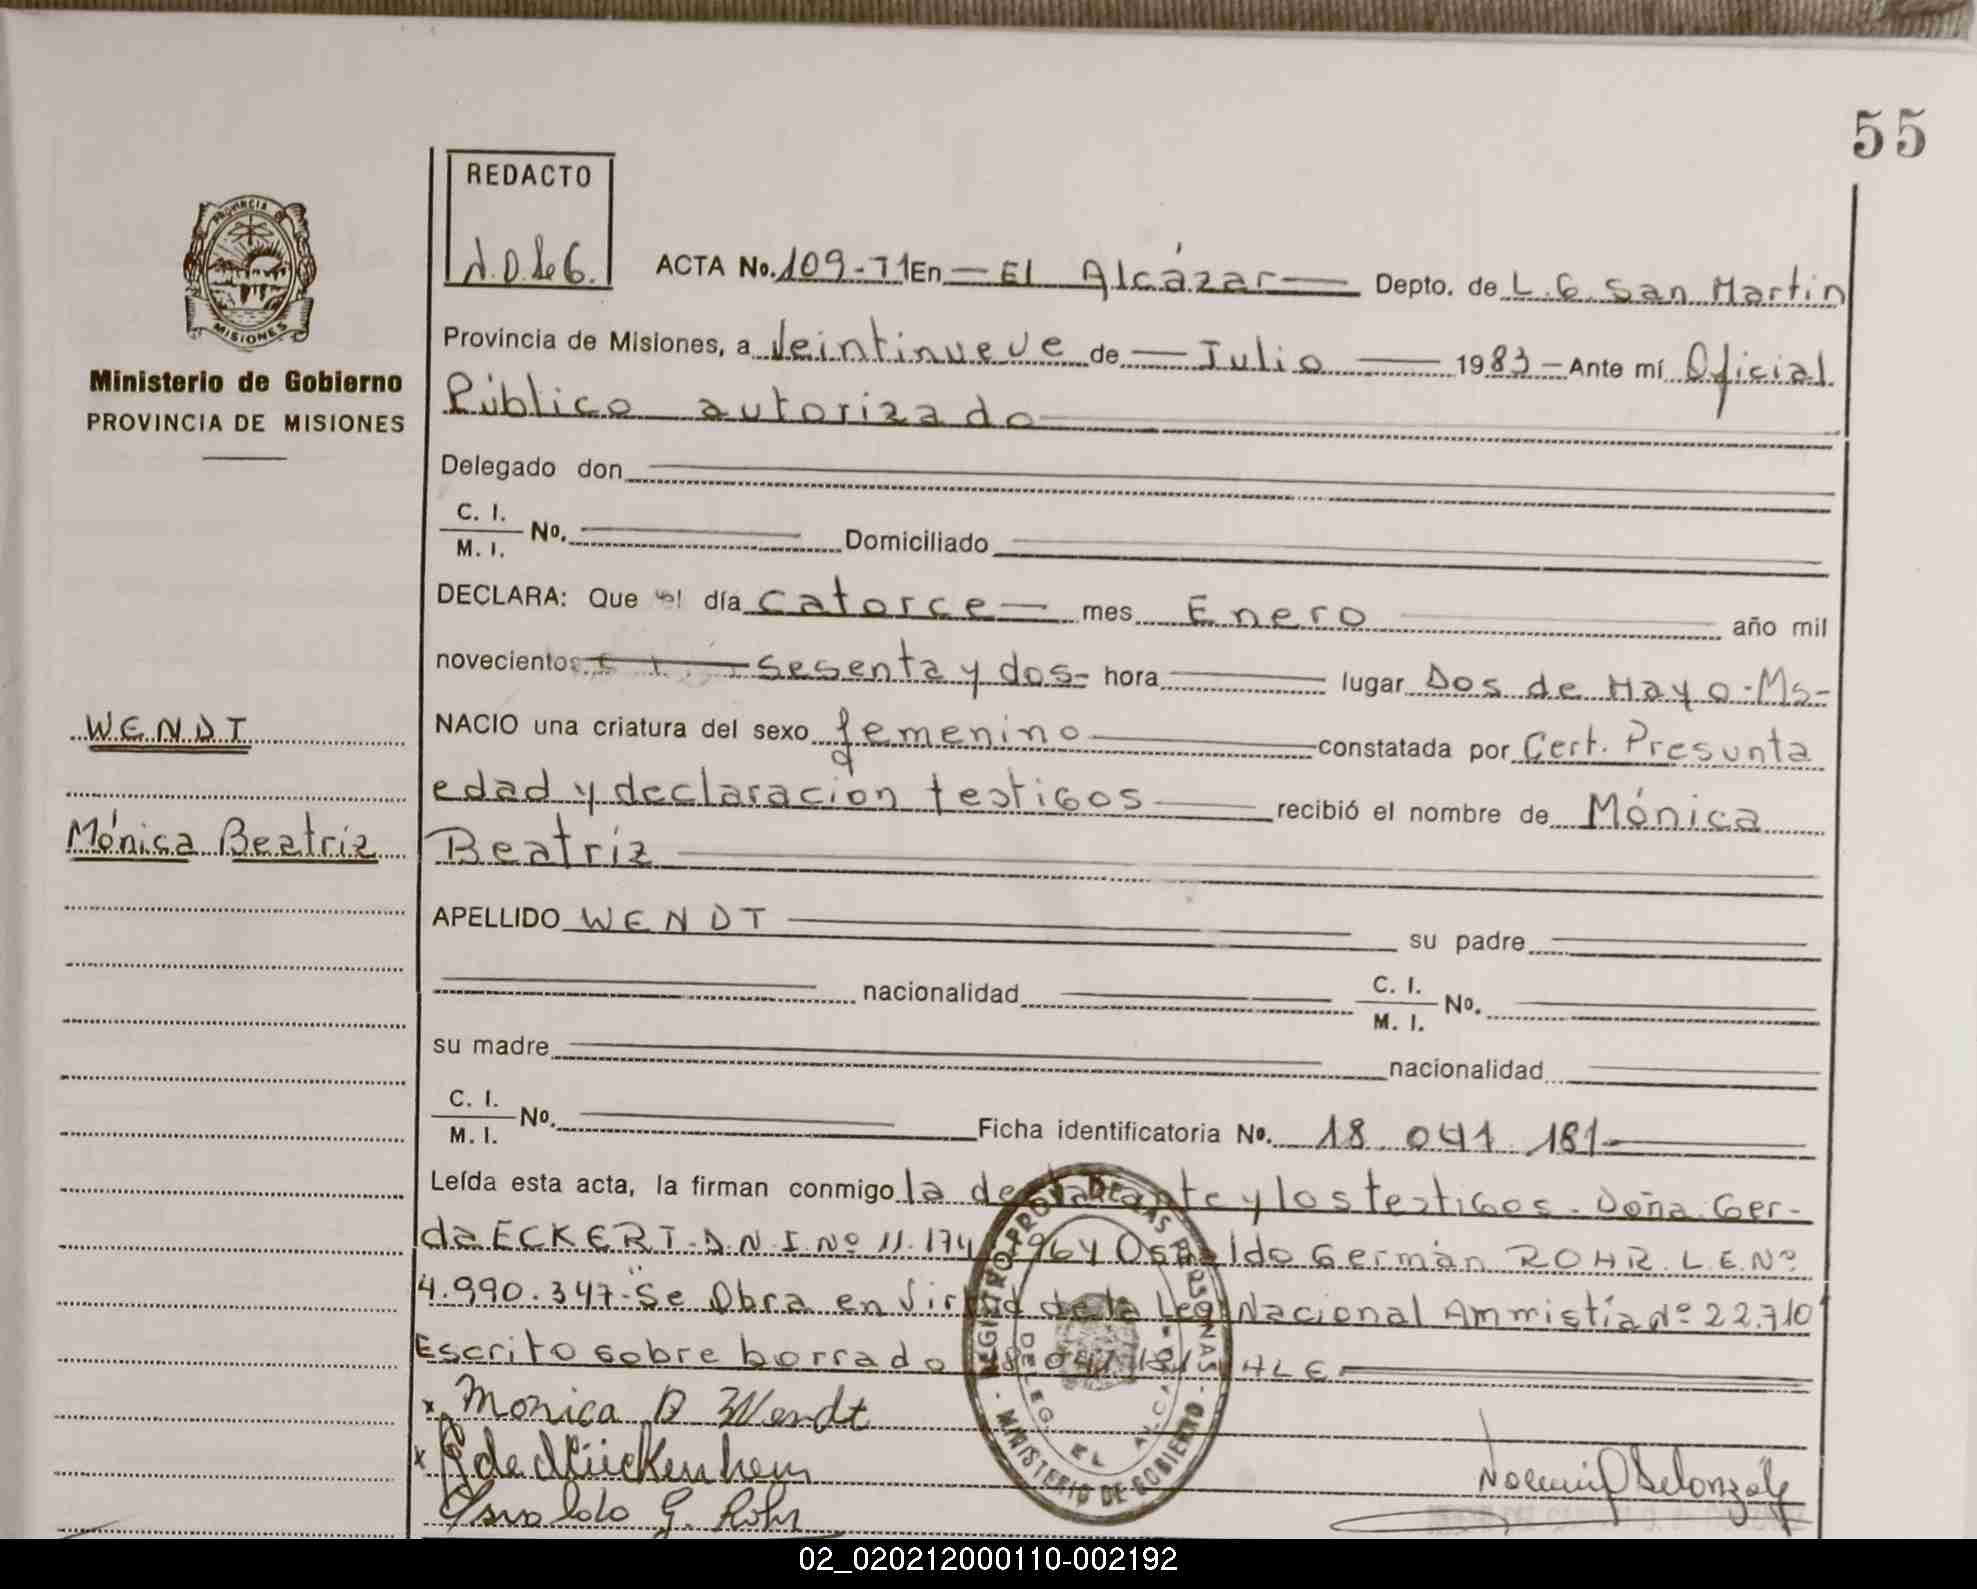 55
REDACTO
PROVINCIA DE
MISIONES
N.D.de G.
ACTA No. 109-T1 En — El Alcázar — Depto. de L. G. San Martin
Ministerio de Gobierno
PROVINCIA DE MISIONES
Provincia de Misiones, a Veintinueve de — Julio — 1983 — Ante mí Oficial
Público autorizado
Delegado don
C. I.
M. I. No. Domiciliado
DECLARA: Que el día catorce — mes Enero año mil
novecientos sesenta y dos- hora lugar Dos de Mayo-Ms-
WENDT
NACIO una criatura del sexo femenino constatada por Cert. Presunta
edad y declaracion testigos recibió el nombre de Mónica
Mónica Beatriz
Beatríz
APELLIDO WENDT su padre
nacionalidad C. I.
M. I. No.
su madre nacionalidad
C. I.
M. I. No. Ficha identificatoria No. 18 041 181
Leída esta acta, la firman conmigo la declarante y los testigos. Doña Ger-
da ECKERT. D.N.I. Nº 11.174. 96 y Osvaldo Germán ROHR. L.E. Nº
4.990.347- Se Obra en Virtud de la Ley Nacional Ammistía Nº 22.710
Escrito sobre borrado 18 041 181 VALE
Monica B Wendt
Osvaldo G. Rohr
REGISTRO PROV. DE LAS PERSONAS
- MINISTERIO DE GOBIERNO -
DELEG. EL ALCAZAR
02_020212000110-002192